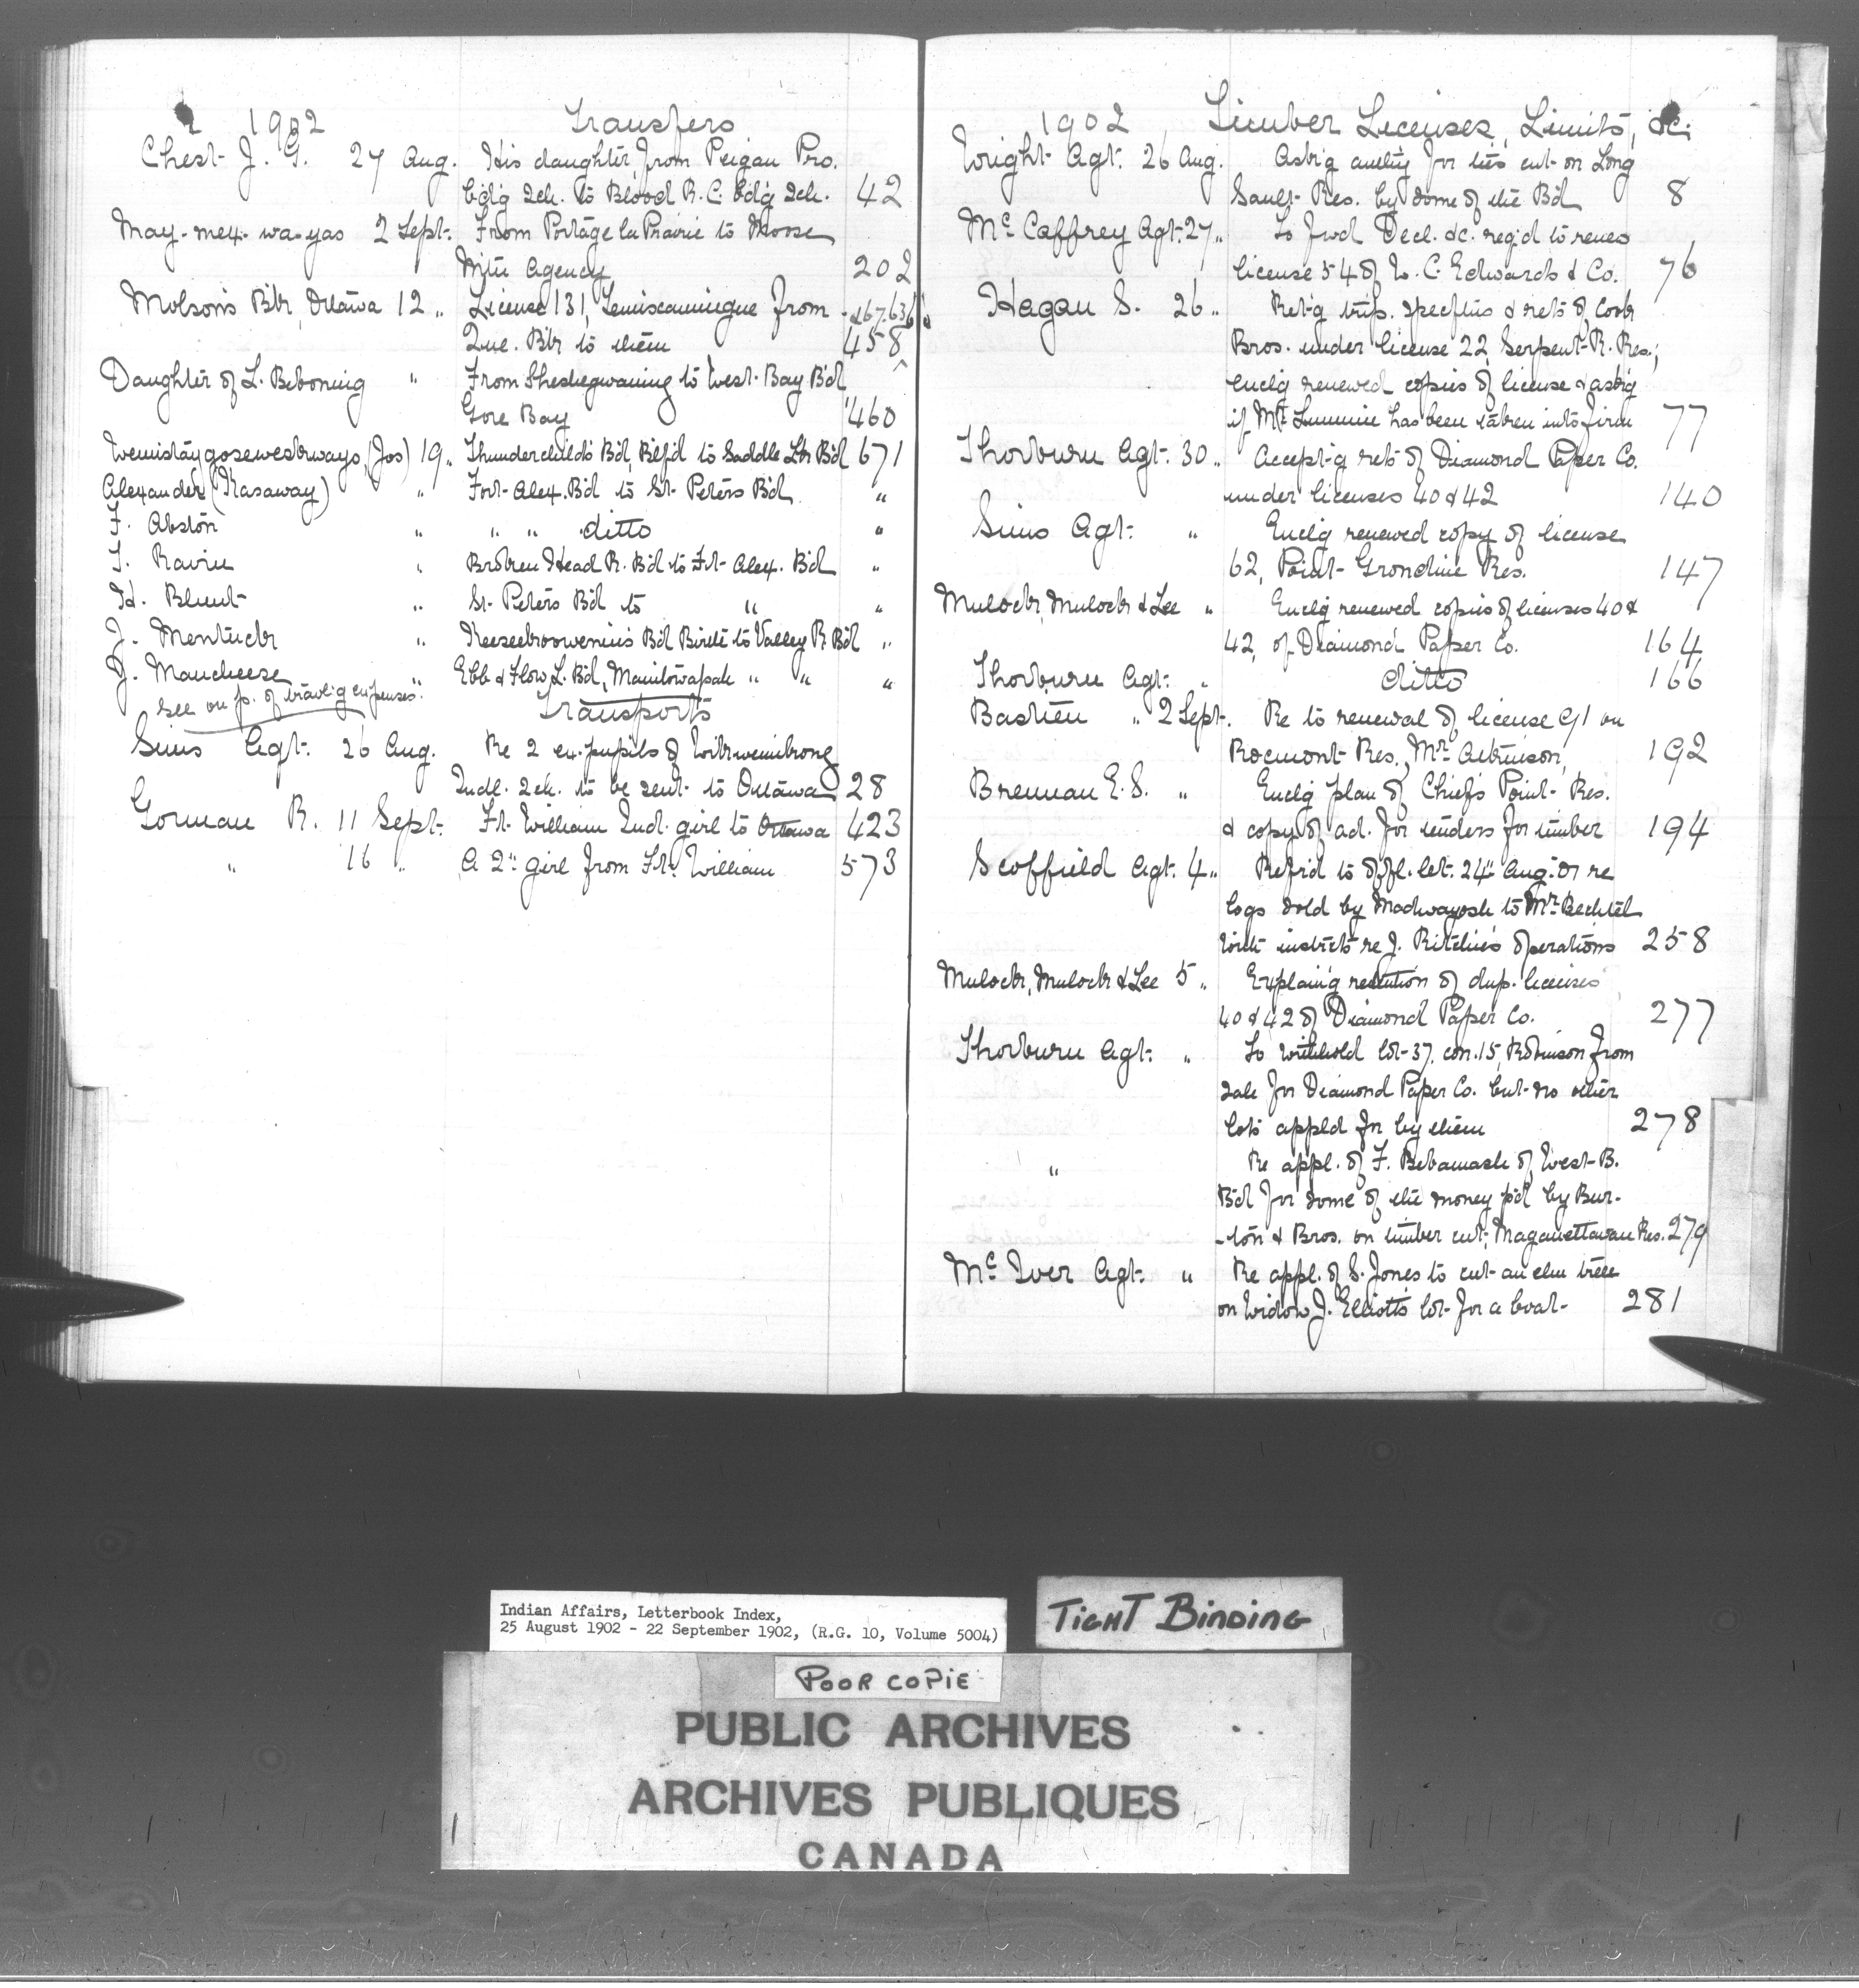 1902 Transfers
Chest J. G. 27 Aug. His daughter, from Peigan Pro.
bd'g Sch. to Blood R. C. bd'g Sch. 42
May-mex-wa-yas 2 Sept. From Portage la Prairie to Moose
Mtn Agency 202
Molsons Bk, Ottawa 12 " License 131, Temiscamingue from
Que. Bk to them 458
Daughter of L. Beboning " From Sheshegwaning to West Bay B'd
Gore Bay 460
(Jos) 19 " Thunderchild's B'd, Blf'd to Saddle Lk B'd 671
Alexander (Kasaway) " Fort Alex. B'd to St. Peters B'd "
F. Abston " " " ditto "
T. Ravin " Broken Head R. B'd to Ft Alex. B'd "
Id. Blunt " St. Peters B'd to " "
J. Mentuck " Keeseekoowenin's B'd Birtle to Valley R. B'd "
J. Mancheese " Ebb & Flow L. B'd, Manitowapah " " "
See on p. of travlig expenses.
Transports
Sims Agt. 26 Aug. Re 2 ex. pupils of Wikwemikong
Indl. Sch. to be sent to Ottawa 28
Gorman R. 11 Sept. Ft. William Ind. girl to Ottawa 423
" 16 " A 2" girl from Ft. William 573
1902 Timber Licenses, Limits, &c.
Wright Agt. 26 Aug. Ask'g auth'y for ties cut on Long
Sault Res. by some of the B'd 8
Mc Caffrey Agt. 27 " To fwd Decl. &c. req'd to renew
license 54 of W. C. Edwards & Co. 76
Hagan S. 26 " Ret'g trip. specftns & rets of Cook
Bros. under license 22, Serpent R. Res.;
enclg renewed copies of license & askg
if Mr. has been taken into firm 77
Thorburn Agt. 30 " Accept'g rets of Diamond Paper Co.
under licenses 40 & 42 140
Sims Agt. " Enclg renewed copy of license
62, Point Grondine Res. 147
Mulock, Mulock & Lee " Enclg renewed copies of licenses 40 &
42, of Diamond Paper Co. 164
Thorburn Agt. " ditto 166
Bastien " 2 Sept. Re to renewal of license 91 on
Rocmont Res., Mr. Atkinson, 192
Brennan E. S. " Enclg plan of Chiefs Point Res.
& copy of ad. for tenders for timber 194
Scoffield Agt. 4 " Ref'd to offl. let. 24" Aug. 01 re
logs sold by Madwayosh to Mr. Bechtel
with instrcts re J. Ritchie's operations 258
Mulock, Mulock & Lee 5 " Explain'g retention of dup. licenses
40 & 42 of Diamond Paper Co. 277
Thorburn Agt. " To withhold lot 37, con. 15, Robinson from
sale for Diamond Paper Co. but no other
lots appld for by them 278
" Re appl. of F. Bebamash of West B.
B'd for some of the money p'd by Bur-
-ton & Bros. on timber cut, Maganettawan Res. 279
Mc Iver Agt. " Re appl. of S. Jones to cut an elm tree
on Widow J. Elliott's lot for a boat 281
Indian Affairs, Letterbook Index,
25 August 1902 - 22 September 1902, (R.G. 10, Volume 5004)
TIGHT BINDING
POOR COPIE
PUBLIC ARCHIVES
ARCHIVES PUBLIQUES
CANADA